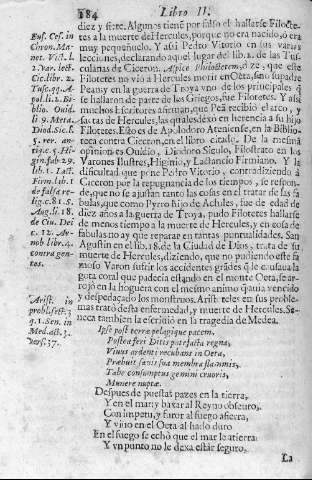 184
Libro II.
diez y siete. Algunos tiene por falso el hallarse Filocte-
tes a la muerte del Hercules, porque no era nacido, ó era
muy pequeñuelo. Y assi Pedro Vitorio en sus varias
lecciones, declarando aquel lugar del lib. 2. de las Tus-
culanas de Ciceron. Aspice Philoctetem, dize, que este
Filotetes no vió à Hercules morir en Oeta, sino supadre
Peans, y en la guerra de Troya vno de los principales q̃
se hallaron de parte de los Griegos, fue Filotetes. Y aun
muchos Escritores afirman, que Peã recibió el arco, y
saetas de Hercules, las quales dexó en herencia a su hijo
Filotetes. Esto es de Apolodoro Ateniense, en la Biblio-
teca contra Ciceron, en el libro citado. De la mesma
opinion es Ouidio, Diodoro Siculo, Filostrato en los
Varones Ilustres, Higinio, y Lactancio Firmiano. Y la
dificultad que pone Pedro Vitorio, contradiziendo à
Ciceron por la repugnancia de los tiempos, se respon-
de, que no se ajustan tanto las cosas en el tratar de las fa-
bulas, que como Pyrro hijo de Achiles, fue de edad de
diez años a la guerra de Troya, pudo Filotetes hallarse
de menos tiempo a la muerte de Hercules, y en cosa de
fabulas no ay que reparar en tantas puntualidades. San
Agustin en el lib. 18. de la Ciudad de Dios, trata de su
muerte de Hercules, diziendo, que no pudiendo este fa
moso Varon sufrir los accidentes grãdes q̃ le causaua la
gota coral que padecia estando en el monte Oeta, se ar-
rojó en la hoguera con el mesmo animo q̃ auia vencido
y despedaçado los monstruos. Aristoteles en sus proble-
mas trató desta enfermedad, y muerte de Hercules. Se-
neca tambien la escriuió en la tragedia de Medea.
Ipse post terræ pelagique pacem,
Postea feri Ditis patefacta regna,
Viuus ardenti recubans in Oeta,
Præbuit sæuis sua membra flammis,
Tabe consumptus gemini cruoris,
Munere nuptæ.
Despues de puestas pazes en la tierra,
Y en el mar, y baxar al Reyno obscuro,
Con impetu, y furor al fuego afierra,
Y viuo en el Oeta al hado duro
En el fuego se echó que el mar le atierra
Y vn punto no le dexa estàr seguro.
La
Eus. Ces. in
Chron. Ma-
net. Vict. l.
2. var. lect.
Cic. lib. 2.
Tusc. qq. A-
pol. li. 2. Bi-
blio. Ouid.
li 9. Meta.
Diod. Sic. l.
5. rer. an-
tiq. c. 5. Hi-
gin. fab. 29.
lib. 1. Lact.
Firm. lib. 1.
de falsa re-
lig. c. 81. S.
Aug. li. 18.
de Ciu. Dei
c. 12. Ar-
nob libr. 4.
contra gen-
tos.
Arist. in
probl. sect. 3
q. 1. Sen. in
Med. act. 3.
vers. 37.